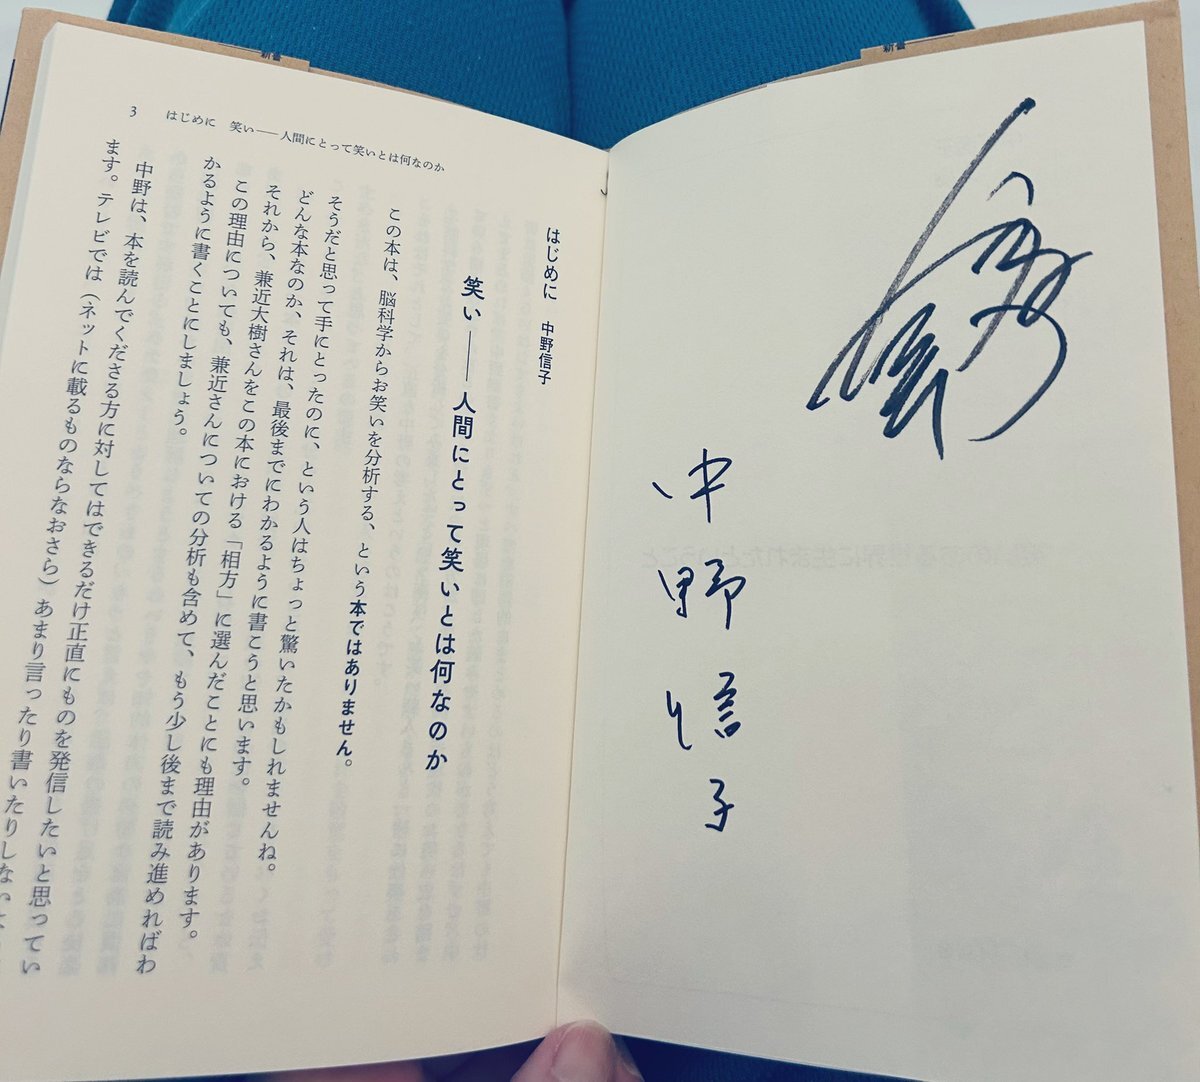 中野信子
新書
新書
3　はじめに　笑い――人間にとって笑いとは何なのか
はじめに　中野信子
笑い――人間にとって笑いとは何なのか
この本は、脳科学からお笑いを分析する、という本ではありません。
そうだと思って手にとったのに、という人はちょっと驚いたかもしれませんね。
どんな本なのか、それは、最後までにわかるように書こうと思います。
それから、兼近大樹さんをこの本における「相方」に選んだことにも理由があります。
この理由についても、兼近さんについての分析も含めて、もう少し後まで読み進めればわ
かるように書くことにしましょう。
中野は、本を読んでくださる方に対してはできるだけ正直にものを発信したいと思ってい
ます。テレビでは（ネットに載るものならなおさら）あまり言ったり書いたりしない